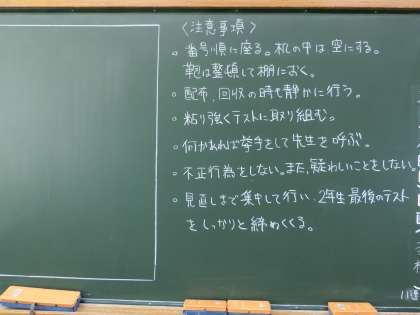 〈注意事項〉
。番号順に座る。机の中は空にする。
鞄は整頓して棚におく。
。配布、回収の時も静かに行う。
。粘り強くテストに取り組む。
。何かあれば挙手をして先生を呼ぶ。
。不正行為をしない。また、疑わしいことをしない。
。見直しまで集中して行い、2年生最後のテスト
をしっかりと締めくくる。